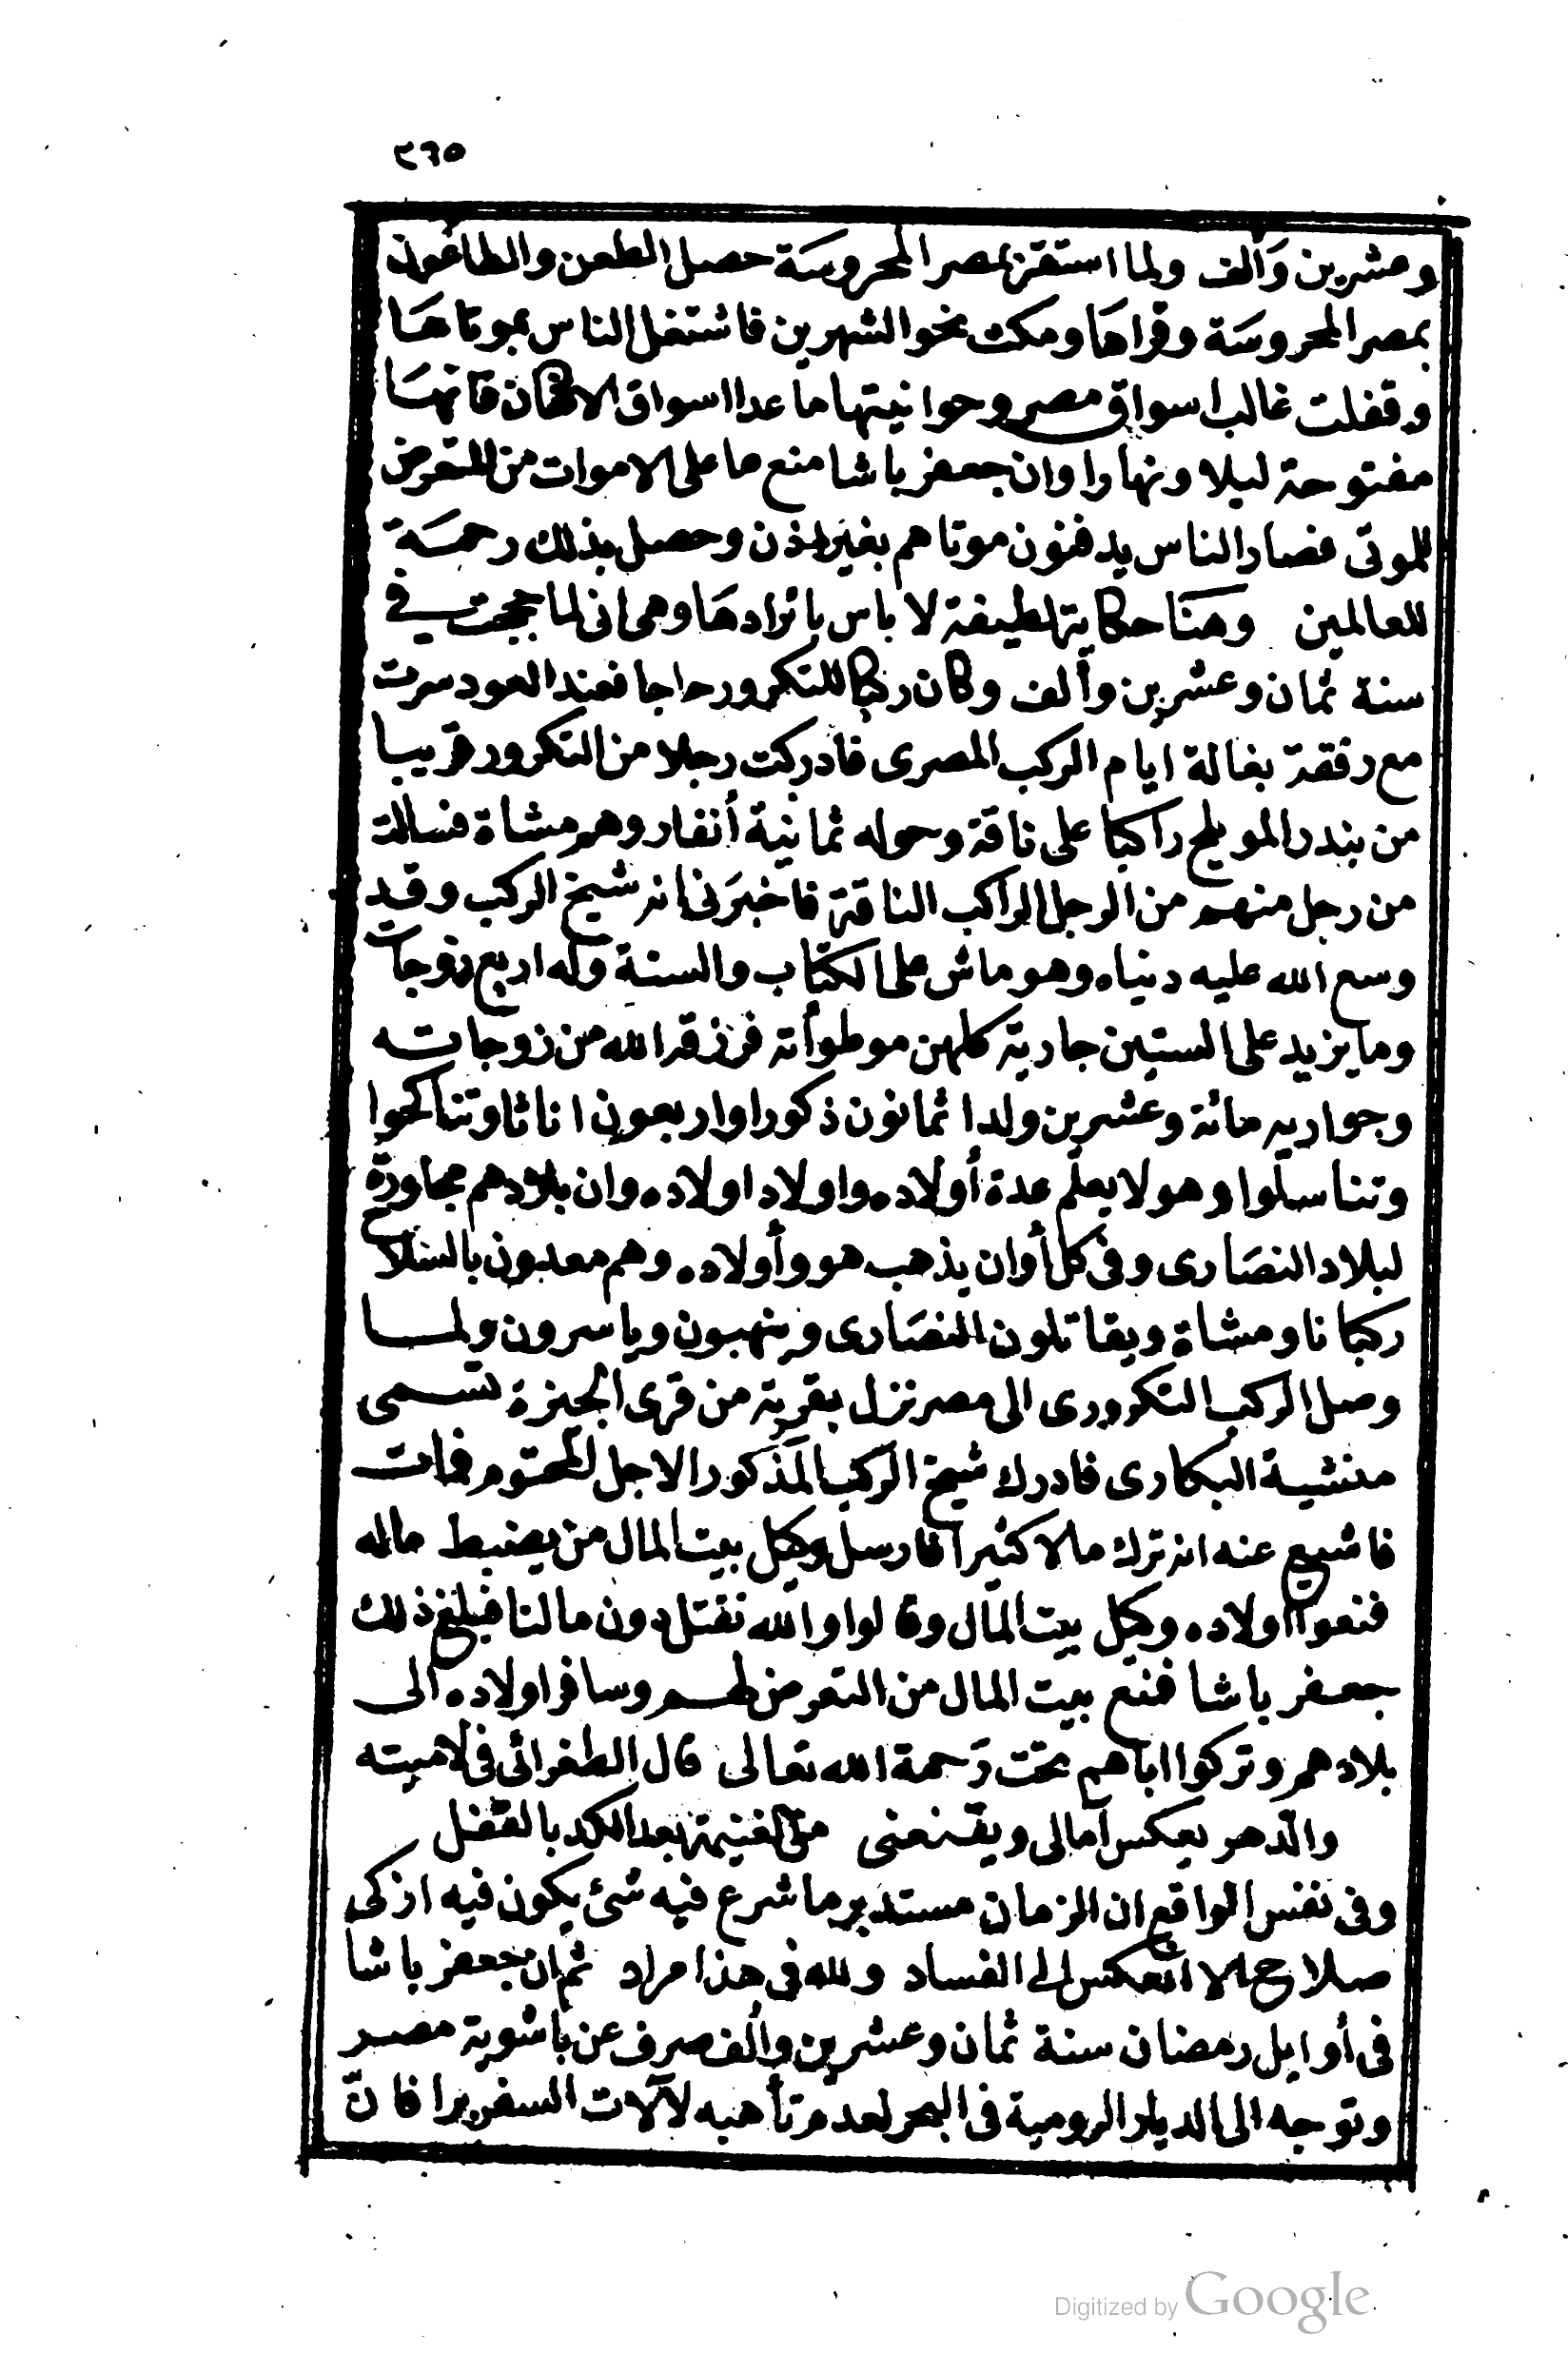 ٢٦٥
وعشرين وَألف ولما استقر بمصر المحروسَة حصل الطعن والطاعون
بمصر المحروسَة وقراهَا ومكث نحو الشهرين فاشتغل الناس بموتاهَا
وقفلت غالب اسواق مصر وحوانيتها ما عدا اسواق الاكفان فانهَا
مفتوحة ليلا ونهارا وان جعفر باشا منع ما على الاموات من التعرض
للموتى فصار الناس يدفنون موتاهم بغير اذن وحصل بذلك رحمَة
للعالمين وهنَا حكاية لطيفة لا باس بايرادهَا وهى انى لما حججت في
سنة ثمان وعشرين وألف وكان ركبا للتكرور حاجا فعند العود سرت
مع رفقة بغالة ايام الركب المصرى فادركت رجلا من التكرور قريبا
من بندر المويلح راكبا على ناقة وحوله ثمانية أنفار وهم مشاة فسالت
من رجل منهم من الرجل الراكب الناقة فاخبرَنى انه شيخ الركب وقد
وسع الله عليه دنياه وهو ماش على الكتاب والسنة وله اربع زوجات
وما يزيد على الستين جارية كلهن موطوأته فرزقه الله من زوجاته
وجواريه مائة وعشرين ولدا ثمانون ذكورا واربعون اناثا وتناكحوا
وتناسلوا وهو لا يعلم عدة أولاده واولاد اولاده وان بلادهم مجاورة
لبلاد النصَارى وفى كل أوان يذهب هو وأولاده وهم معدبون بالسلاح
ركبانا ومشاة ويقاتلون النصَارى وينهبون وياسرون ولما
وصل الركب التكرورى الى مصر نزل بقرية من قرى الجيزة تسمى
منشية البكارى فادرك شيخ الركب المذكور الاجل المحتوم فمات
فاشيع عنه انه ترك مالا كثيرا فارسل وكيل بيت المال من يضبط ماله
فمنعوا اولاده وكيل بيت المال وقالوا والله نقتل دون مالنا فبلغ ذلك
جعفر باشا فمنع بيت المال من التعرض لهم وسافر اولاده الى
بلادهم وتركوا اباهم تحت رَحمة الله تعالى قال الطغرائى فى لاميته
والدهر يعكس آمالى ويقنعنى من الغنيمة بعد الكد بالقفل
وفى نفس الواقع ان الزمان مستدير ما شرع فيه شئ يكون فيه ازكى
صلاح الا انعكس الى الفساد ولله فى هذا مراد ثم ان جعفر باشا
فى أوايل رمضان سنة ثمان وعشرين وألف صرف عن باشوية مصر
وتوجه الى الديار الرومية فى البحر لعدم تأهبه لآلات السفر برا فانّ
Digitized by Google